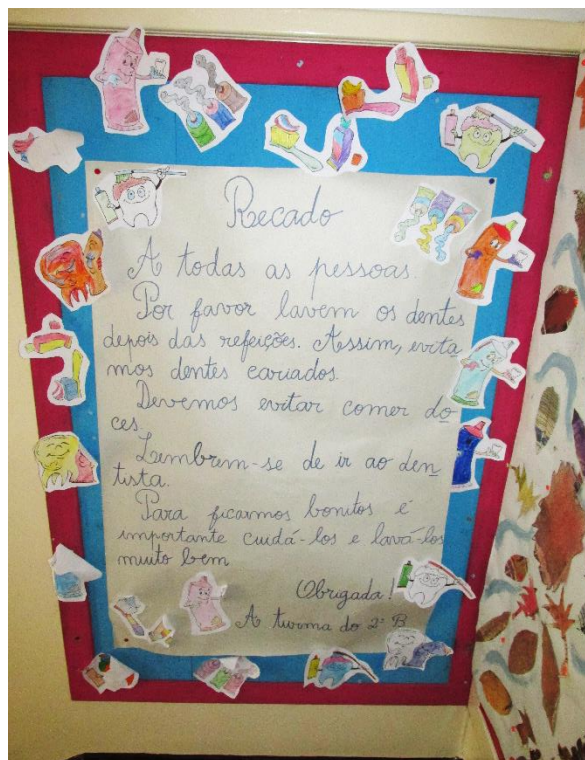 Recado
A todas as pessoas.
Por favor lavem os dentes
depois das refeições. Assim, evita
mos dentes cariados.
Devemos evitar comer do
ces.
Lembrem-se de ir ao den
tista.
Para ficarmos bonitos é
importante cuidá-los e lavá-los
muito bem
Obrigada!
A turma do 2º B